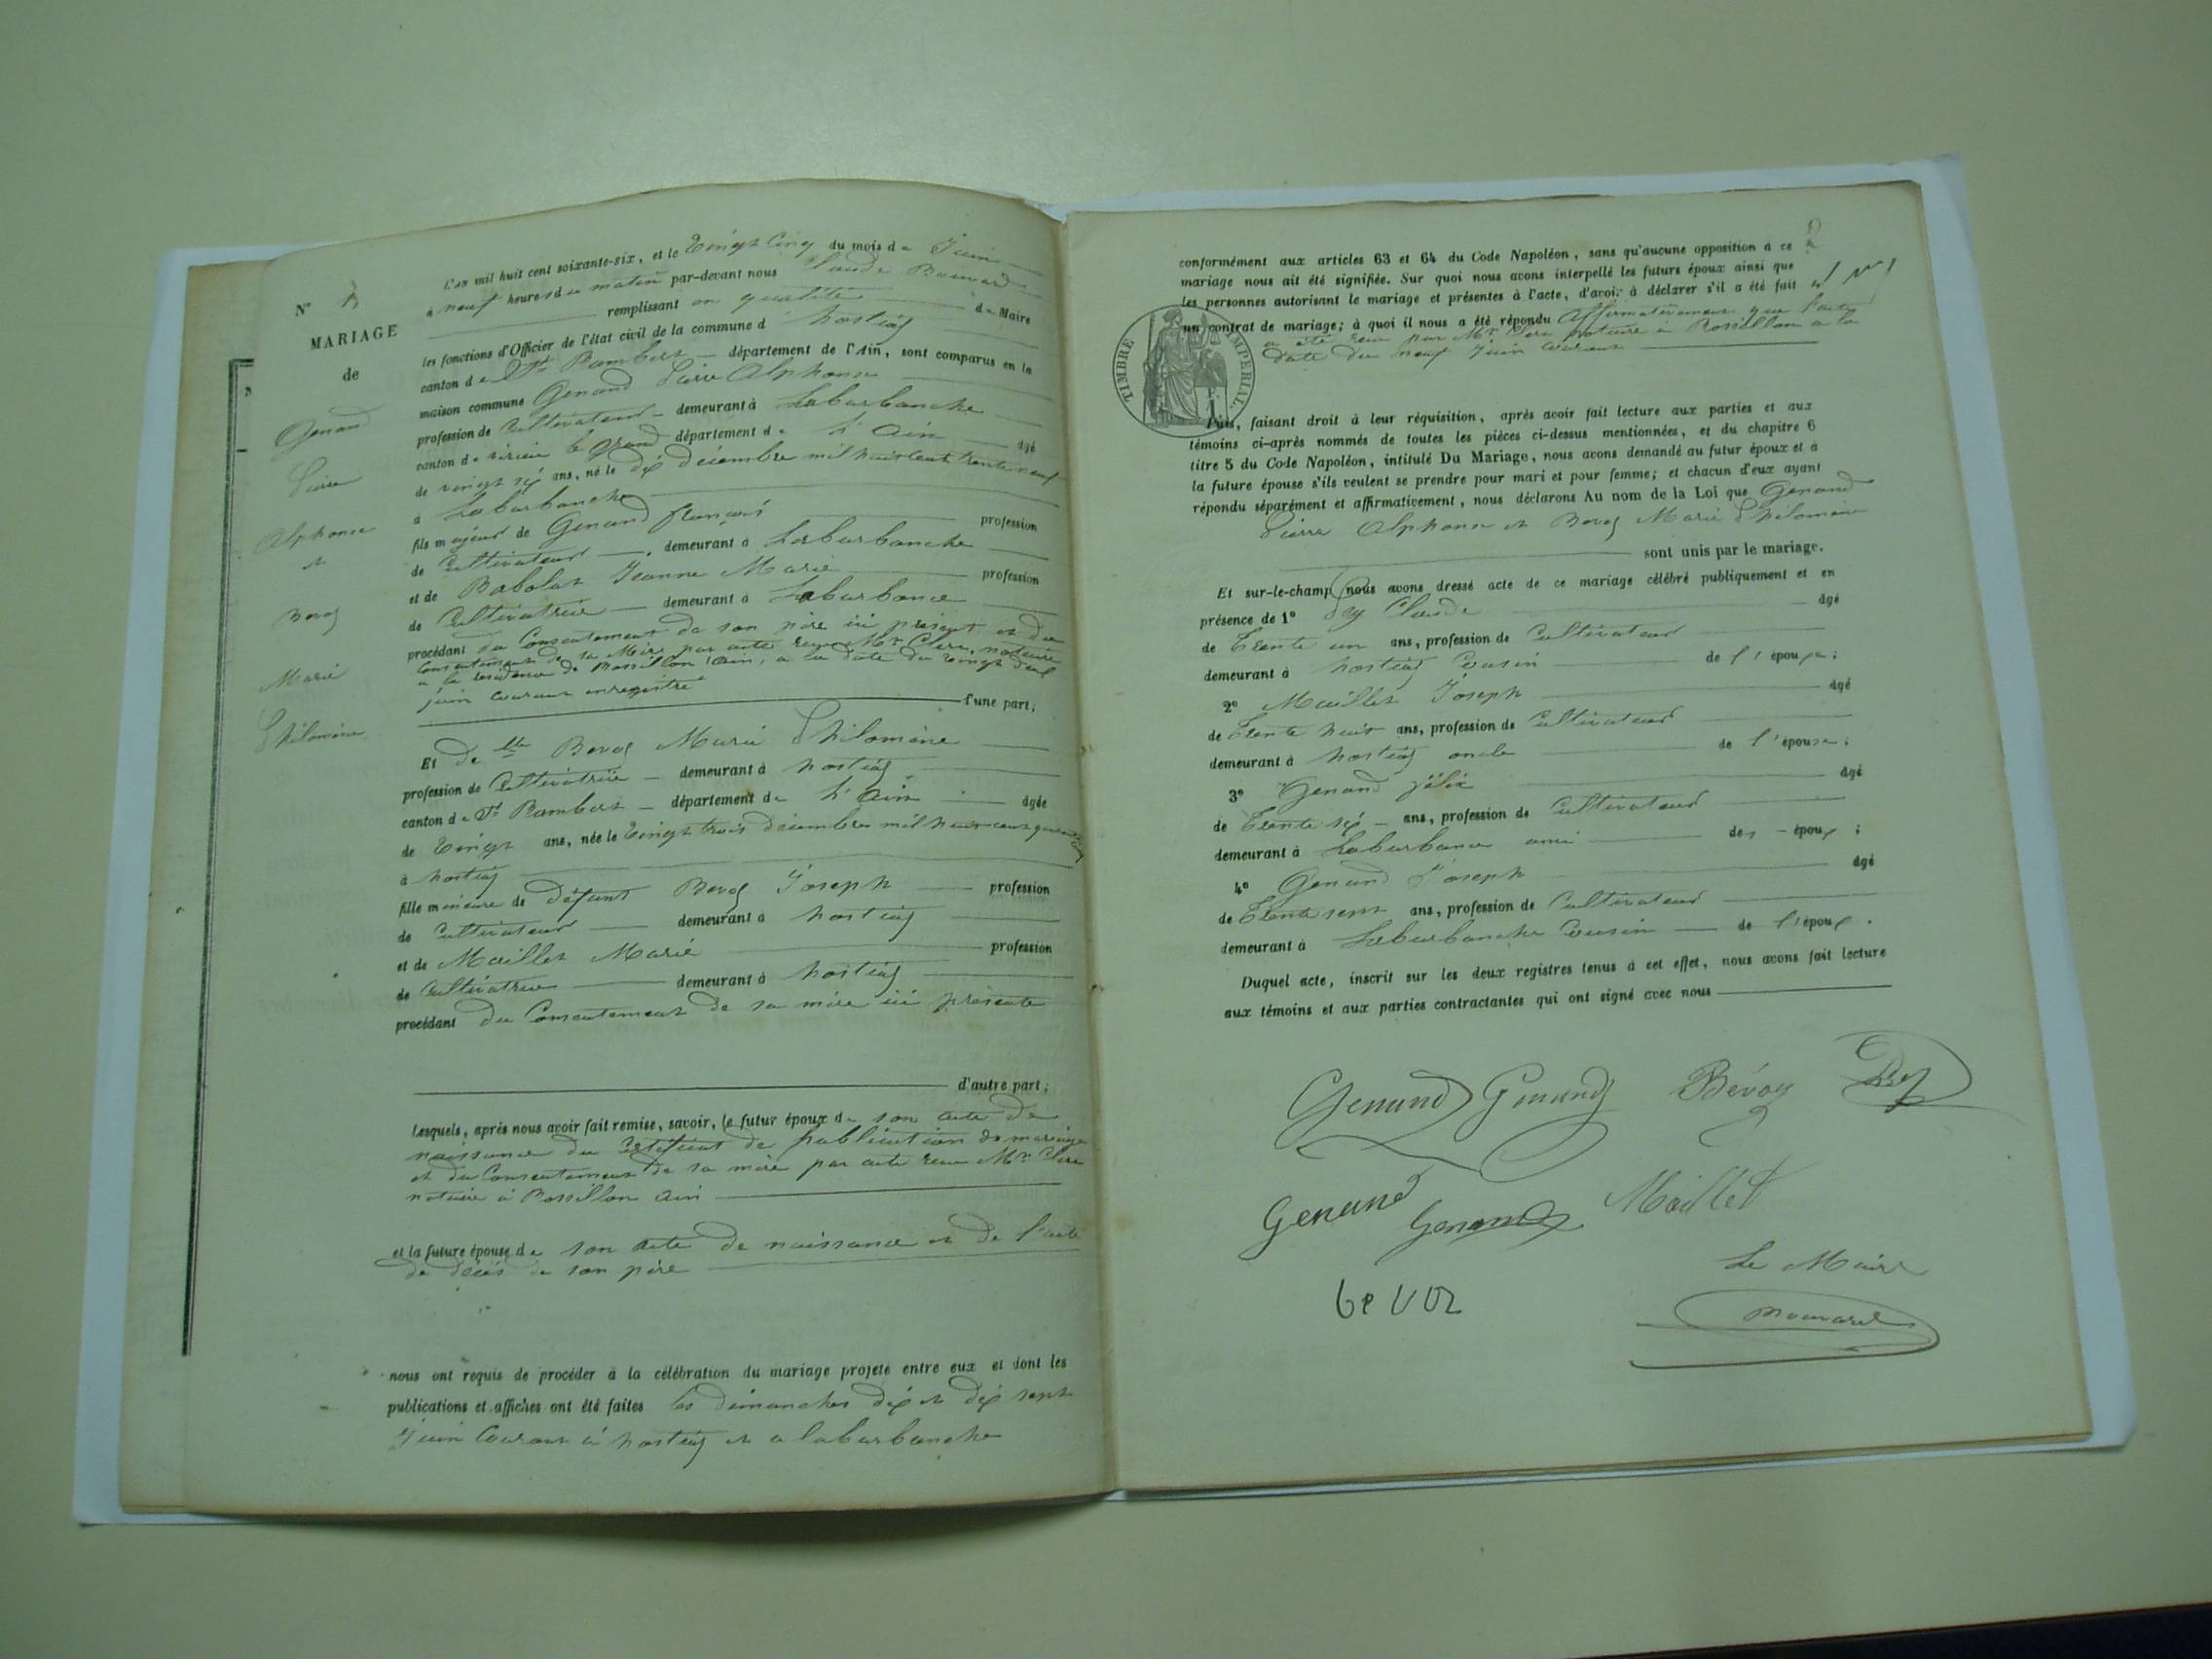 N° 3
MARIAGE
de
Genand
Pierre
Alphonse
et
Bevoz
Marie
Philomène
L'an mil huit cent soixante-six, et le Vingt Cinq du mois de Juin
à neuf heures du matin par-devant nous Claude
remplissant en qualité de Maire
les fonctions d'Officier de l'état civil de la commune d hostiaz
canton de St Rambert département de l'Ain, sont comparus en la
maison commune Genand Pierre Alphonse
profession de Cultivateur demeurant à Laburbanche
canton de virieu le grand département de L'Ain âgé
de vingt six ans, né le dix décembre mil huit cent trente neuf
à Laburbanche
fils majeur de Genand françois profession
de Cultivateur, demeurant à Laburbanche
et de Babolat Jeanne Marie profession
de Cultivatrice demeurant à Laburbance
procédant du Consentement de son père ici présent et du
Consentement de sa Mère par acte reçu Mr Clerc notaire
a la résidence de Rossillon Ain, a la date du vingt deux
juin courant enregistré
d'une part;
Et de Lle Bevoz Marie Philomène
profession de Cultivatrice demeurant à hostiaz
canton de St Rambert département de L'Ain âgée
de Vingt ans, née le Vingt trois décembre mil huit cent
à hostiaz
fille mineure de défunt Bevoz Joseph profession
de Cultivateur demeurant à hostiaz
et de Maillet Marie profession
de Cultivatrice demeurant à hostiaz
procédant du Consentement de sa mère ici présente
d'autre part;
Lesquels, après nous avoir fait remise, savoir, le futur époux de son acte de
naissance du Certificat de publication de mariage
et du Consentement de sa mère par acte reçu Mr Clerc
notaire à Rossillon Ain
et la future épouse de son acte de naissance et de l'acte
de décès de son père
nous ont requis de procéder à la célébration du mariage projeté entre eux et dont les
publications et affiches ont été faites les dimanches dix et dix sept
Juin Courant à hostiaz et a laburbanche
2
conformément aux articles 63 et 64 du Code Napoléon, sans qu'aucune opposition à ce
mariage nous ait été signifiée. Sur quoi nous avons interpellé les futurs époux ainsi que
les personnes autorisant le mariage et présentes à l'acte, d'avoir à déclarer s'il a été fait
un contrat de mariage; à quoi il nous a été répondu Affirmativement que l'acte
a été reçu par Mr Clerc notaire à Rossillon a la
date du neuf juin courant
TIMBRE IMPERIAL
1 F.
Puis, faisant droit à leur réquisition, après avoir fait lecture aux parties et aux
témoins ci-après nommés de toutes les pièces ci-dessus mentionnées, et du chapitre 6
titre 5 du Code Napoléon, intitulé Du Mariage, nous avons demandé au futur époux et à
la future épouse s'ils veulent se prendre pour mari et pour femme; et chacun d'eux ayant
répondu séparément et affirmativement, nous déclarons Au nom de la Loi que Genand
Pierre Alphonse et Bevoz Marie Philomène
sont unis par le mariage.
Et sur-le-champ nous avons dressé acte de ce mariage célébré publiquement et en
présence de 1° Claude âgé
de Trente un ans, profession de Cultivateur
demeurant à hostiaz Cousin de l'épouse;
2° Maillet Joseph âgé
de Trente huit ans, profession de Cultivateur
demeurant à hostiaz oncle de l'épouse;
3° Genand félix âgé
de Trente six ans, profession de Cultivateur
demeurant à Laburbance ami des époux;
4° Genand Joseph âgé
de Trente sept ans, profession de Cultivateur
demeurant à Laburbanche Cousin de l'époux.
Duquel acte, inscrit sur les deux registres tenus à cet effet, nous avons fait lecture
aux témoins et aux parties contractantes qui ont signé avec nous
Genand Genand Bévoz
Genand Genand Maillet
Le Maire
bevoz